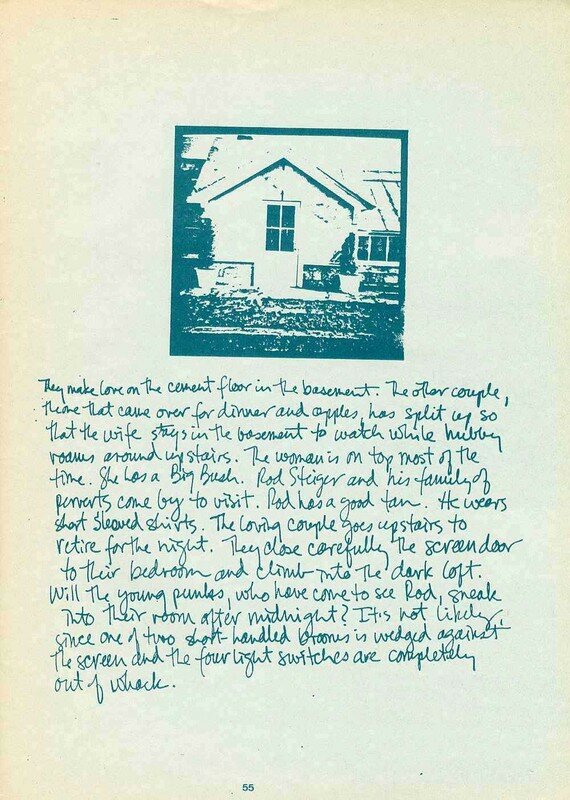 They make love on the cement floor in the basement. The other couple,
the one that came over for dinner and apples, has split up so
that the wife stays in the basement to watch while hubby
roams around upstairs. The woman is on top most of the
time. She has a Big Bush. Rod Steiger and his family of
perverts come by to visit. Rod has a good tan. He wears
short sleaved shirts. The loving couple goes upstairs to
retire for the night. They close carefully the screen door
to their bedroom and climb into the dark loft.
Will the young punks, who have come to see Rod, sneak
into their room after midnight? It's not likely,
since one of two short handled brooms is wedged against
the screen and the four light switches are completely
out of whack.
55